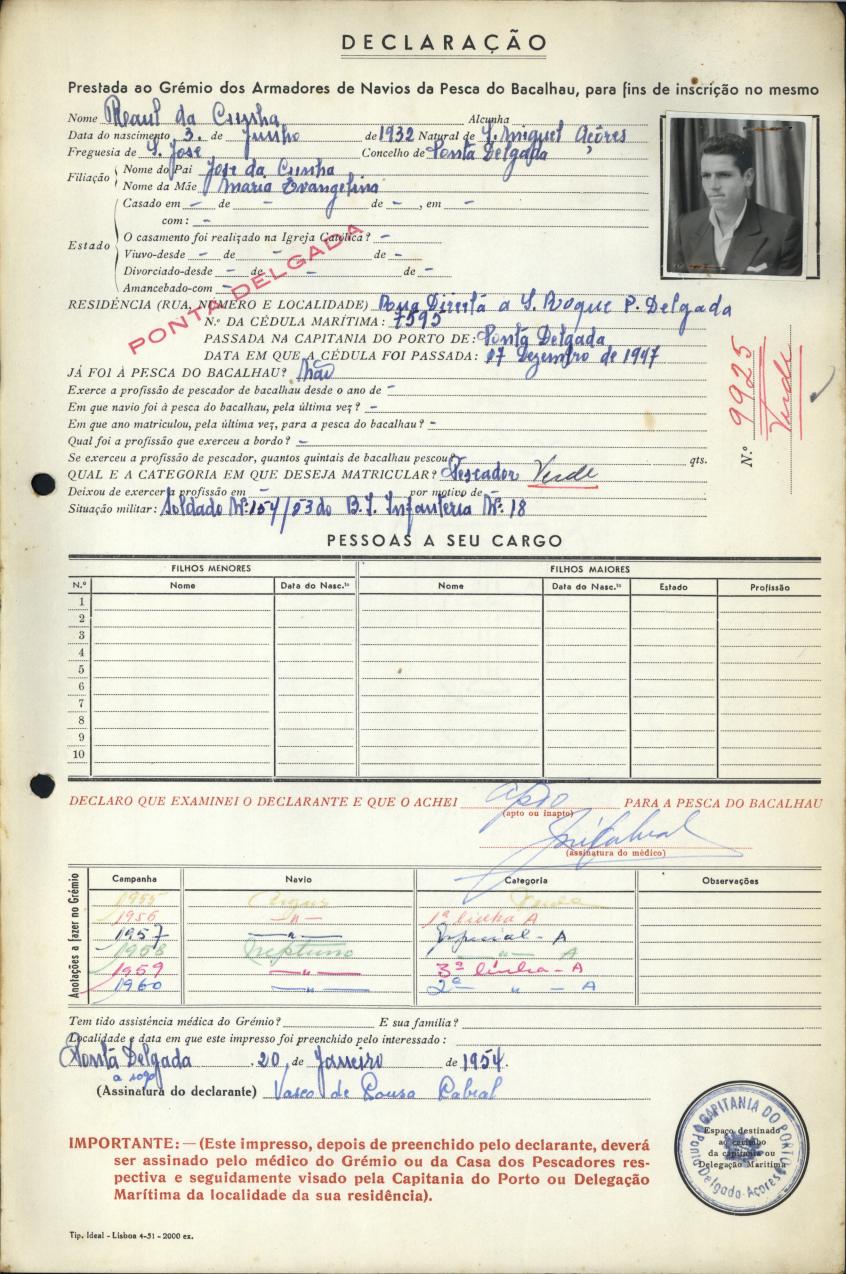 DECLARAÇÃO
Prestada ao Grémio dos Armadores de Navios da Pesca do Bacalhau, para fins de inscrição no mesmo
Nome Raul da Cunha Alcunha
Data do nascimento 3 de Junho de 1932 Natural de S. Miguel Açôres
Freguesia de S. José Concelho de Ponta Delgada
Filiação
Nome do Pai José da Cunha
Nome da Mãe Maria Evangelina
Estado
Casado em - de - de -, em -
com: -
O casamento foi realizado na Igreja Católica? -
Viuvo-desde - de - de -
Divorciado-desde - de - de -
Amancebado-com -
PONTA DELGADA
RESIDÊNCIA (RUA, NÚMERO E LOCALIDADE) Rua Direita a S. Roque P. Delgada
N.º DA CÉDULA MARÍTIMA: 7595
PASSADA NA CAPITANIA DO PORTO DE: Ponta Delgada
DATA EM QUE A CÉDULA FOI PASSADA: 17 Dezembro de 1947
JÁ FOI À PESCA DO BACALHAU? Não
Exerce a profissão de pescador de bacalhau desde o ano de -
Em que navio foi à pesca do bacalhau, pela última vez? -
Em que ano matriculou, pela última vez, para a pesca do bacalhau? -
Qual foi a profissão que exerceu a bordo? -
Se exerceu a profissão de pescador, quantos quintais de bacalhau pescou? qts.
QUAL E A CATEGORIA EM QUE DESEJA MATRICULAR? Pescador Verde
Deixou de exercer a profissão em - por motivo de -
Situação militar: Soldado Nº 154/53 do B. I. Infanteria Nº 18
N.º 9925
Verde
PESSOAS A SEU CARGO
FILHOS MENORES FILHOS MAIORES
N.º Nome Data do Nasc.to Nome Data do Nasc.to Estado Profissão
1
2
3
4
5
6
7
8
9
10
DECLARO QUE EXAMINEI O DECLARANTE E QUE O ACHEI apto PARA A PESCA DO BACALHAU
(apto ou inapto)
(assinatura do médico)
Anotações a fazer no Grémio
Campanha Navio Categoria Observações
1955 Argus Verde
1956 — " — 1ª linha A
1957 — " — Especial - A
1958 Neptuno — " — A
1959 — " — 3ª linha - A
1960 — " — 2ª " - A
Tem tido assistência médica do Grémio? E sua família?
Localidade e data em que este impresso foi preenchido pelo interessado:
Ponta Delgada, 20, de Janeiro de 1954.
a rogo
(Assinatura do declarante) Vasco de Sousa Cabral
IMPORTANTE: — (Este impresso, depois de preenchido pelo declarante, deverá
ser assinado pelo médico do Grémio ou da Casa dos Pescadores res-
pectiva e seguidamente visado pela Capitania do Porto ou Delegação
Marítima da localidade da sua residência).
CAPITANIA DO PORTO
Ponta Delgada-Açores
Espaço destinado
ao carimbo
da capitania ou
Delegação Marítima
Tip. Ideal - Lisboa 4-51 - 2000 ex.